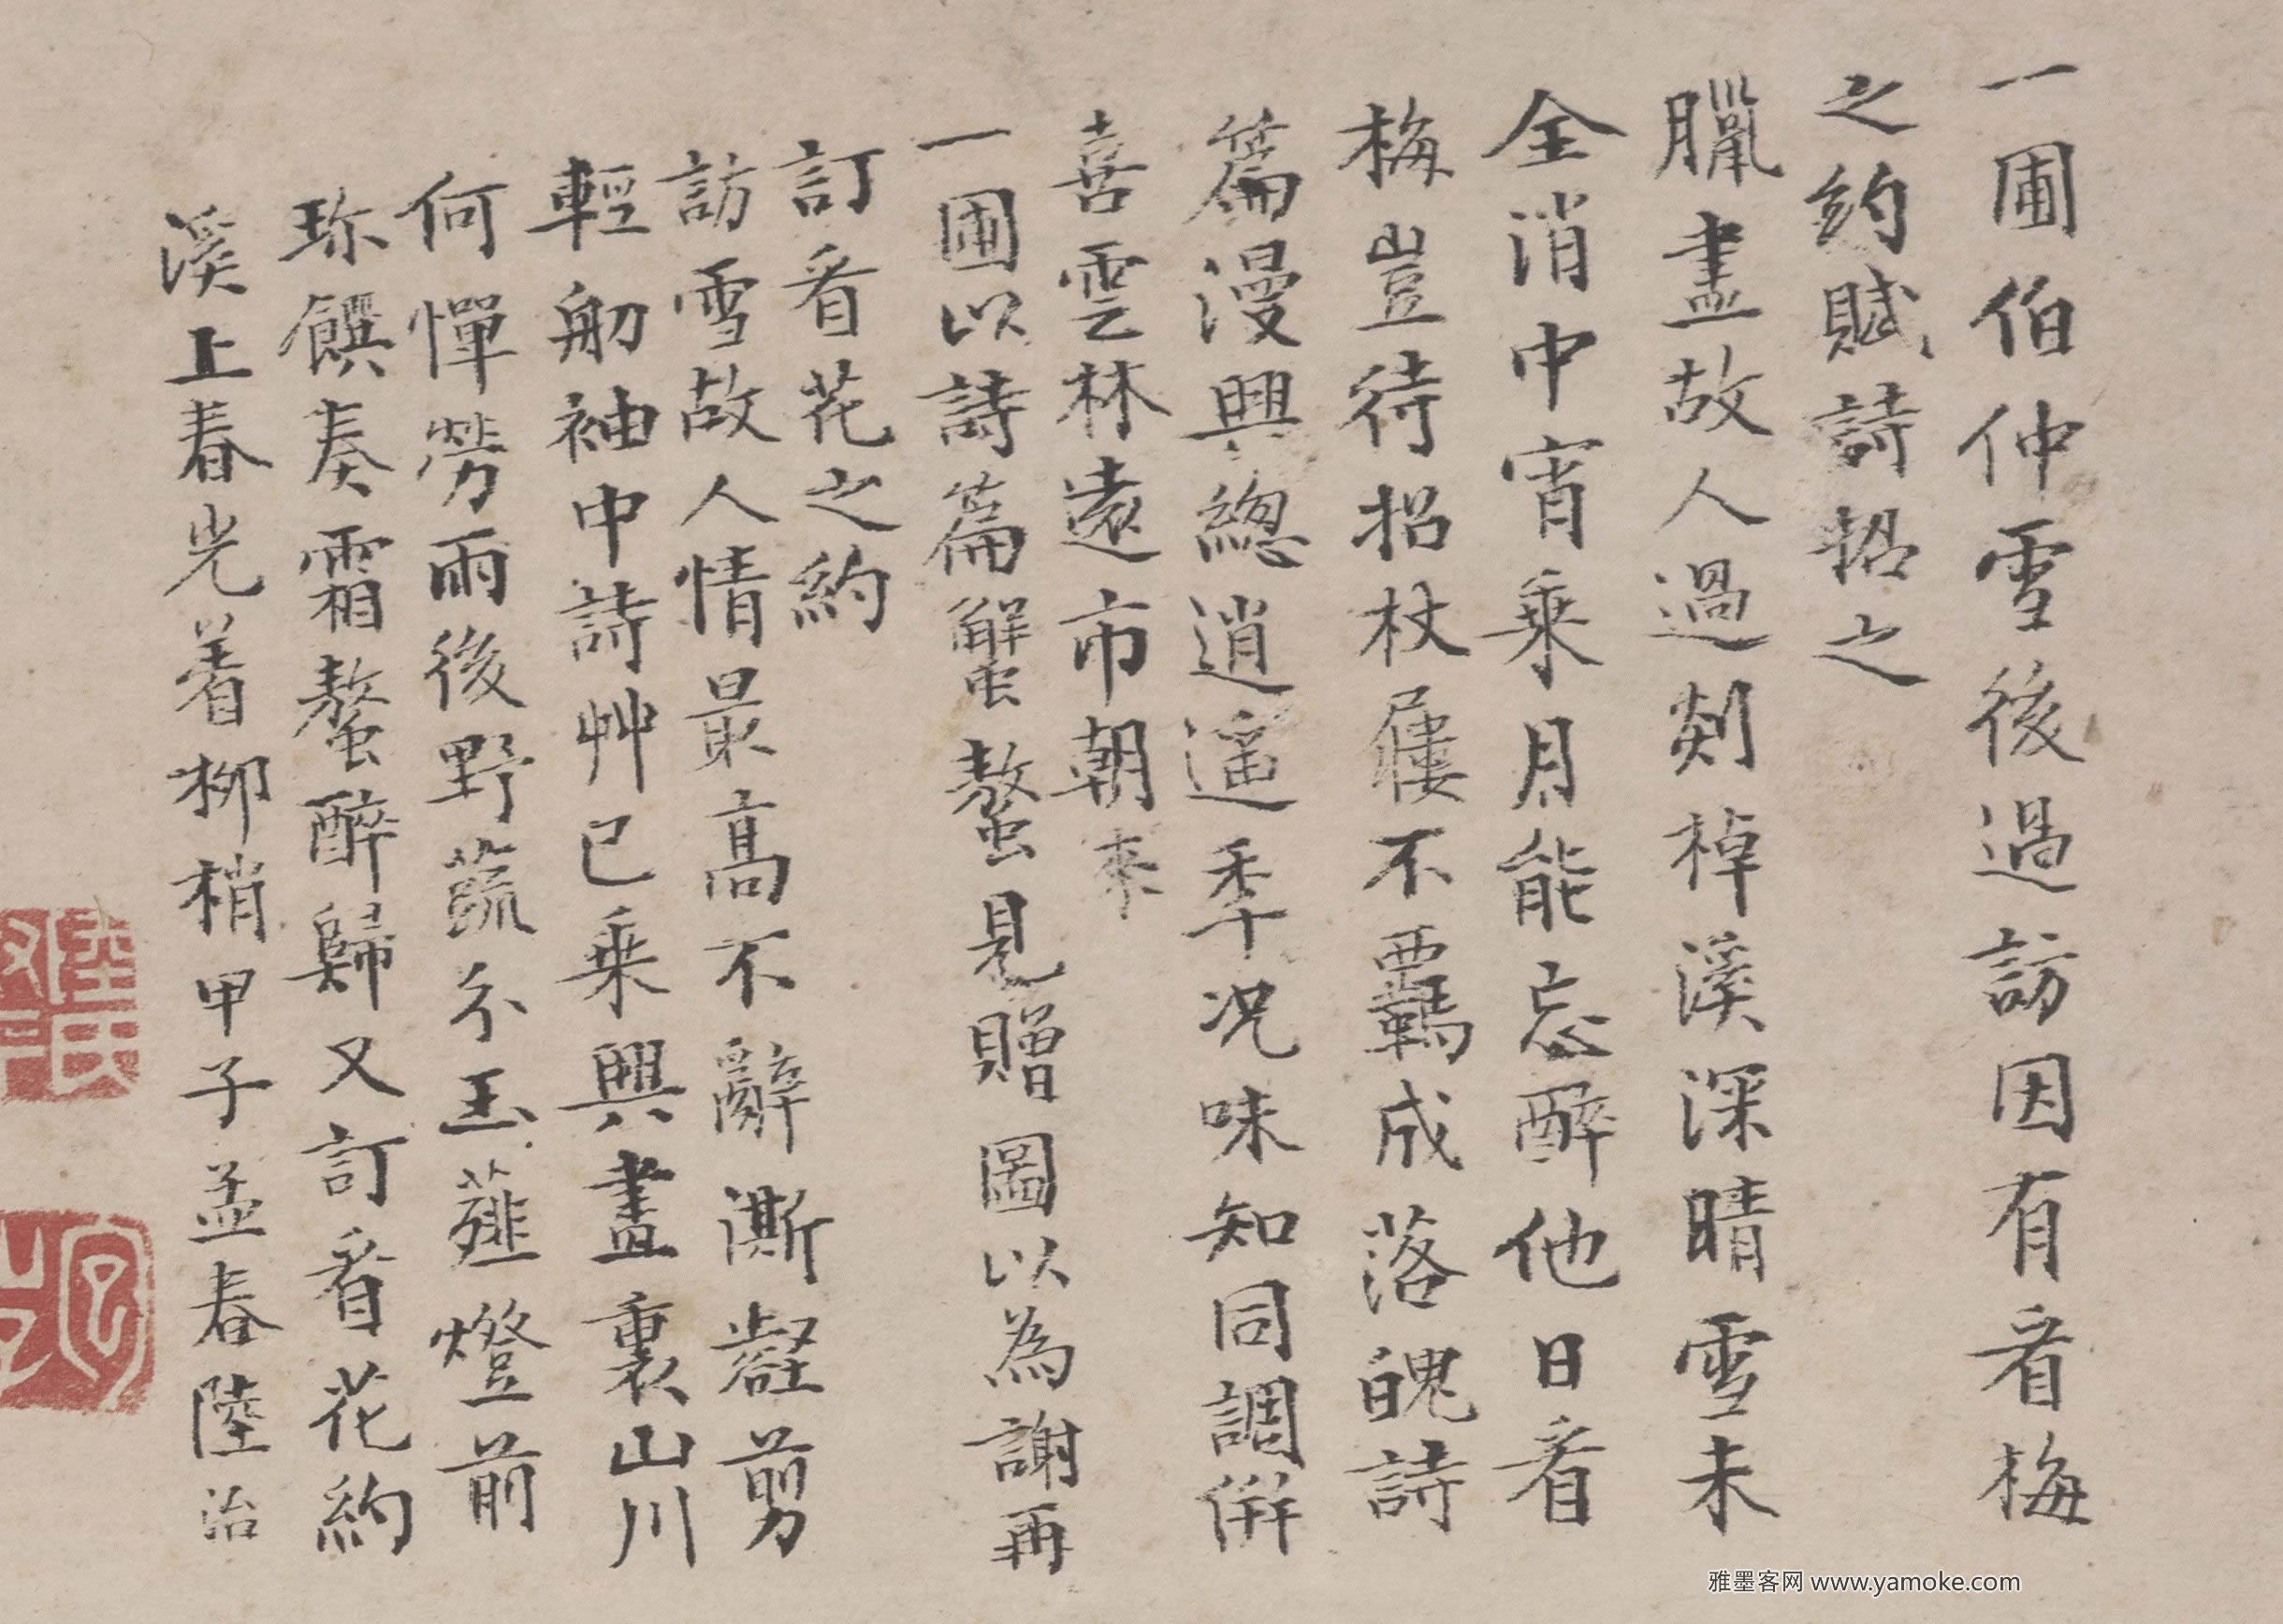 一圃伯仲雪後過訪因有看梅
之約賦詩招之
臘盡故人過剡棹溪深晴雪未
全消中宵乘月能忘醉他日看
梅豈待招杖屨不羈成落魄詩
篇漫興總逍遥季况味知同調併
喜雲林遠市朝来
一圃以詩篇蟹螯見贈圖以為謝再
訂看花之約
訪雪故人情最高不辭澌壑剪
輕舠袖中詩艸已乗興畫裏山川
何憚勞雨後野蔬分玉薤燈前
珎饌奏霜螯醉歸又訂看花約
溪上春光着柳梢甲子孟春陸治
陸氏
雅墨客网 www.yamoke.com